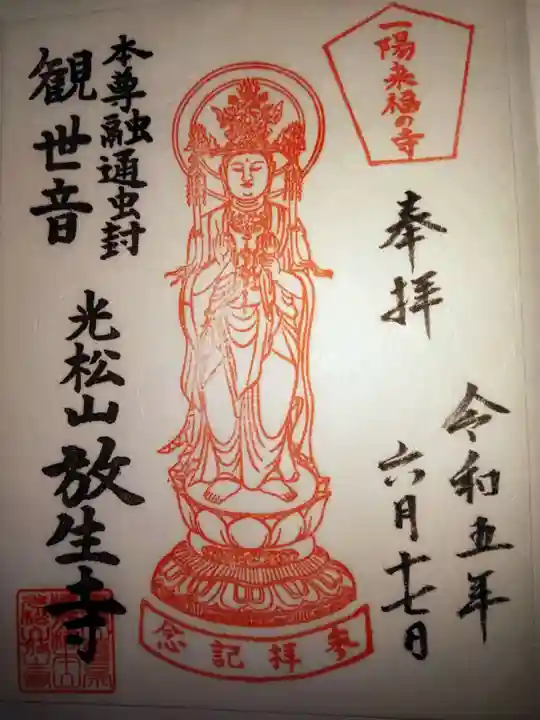 一陽来福の寺
奉拝
令和五年
六月十七日
本尊融通虫封
観世音
光松山放生寺
参拝記念